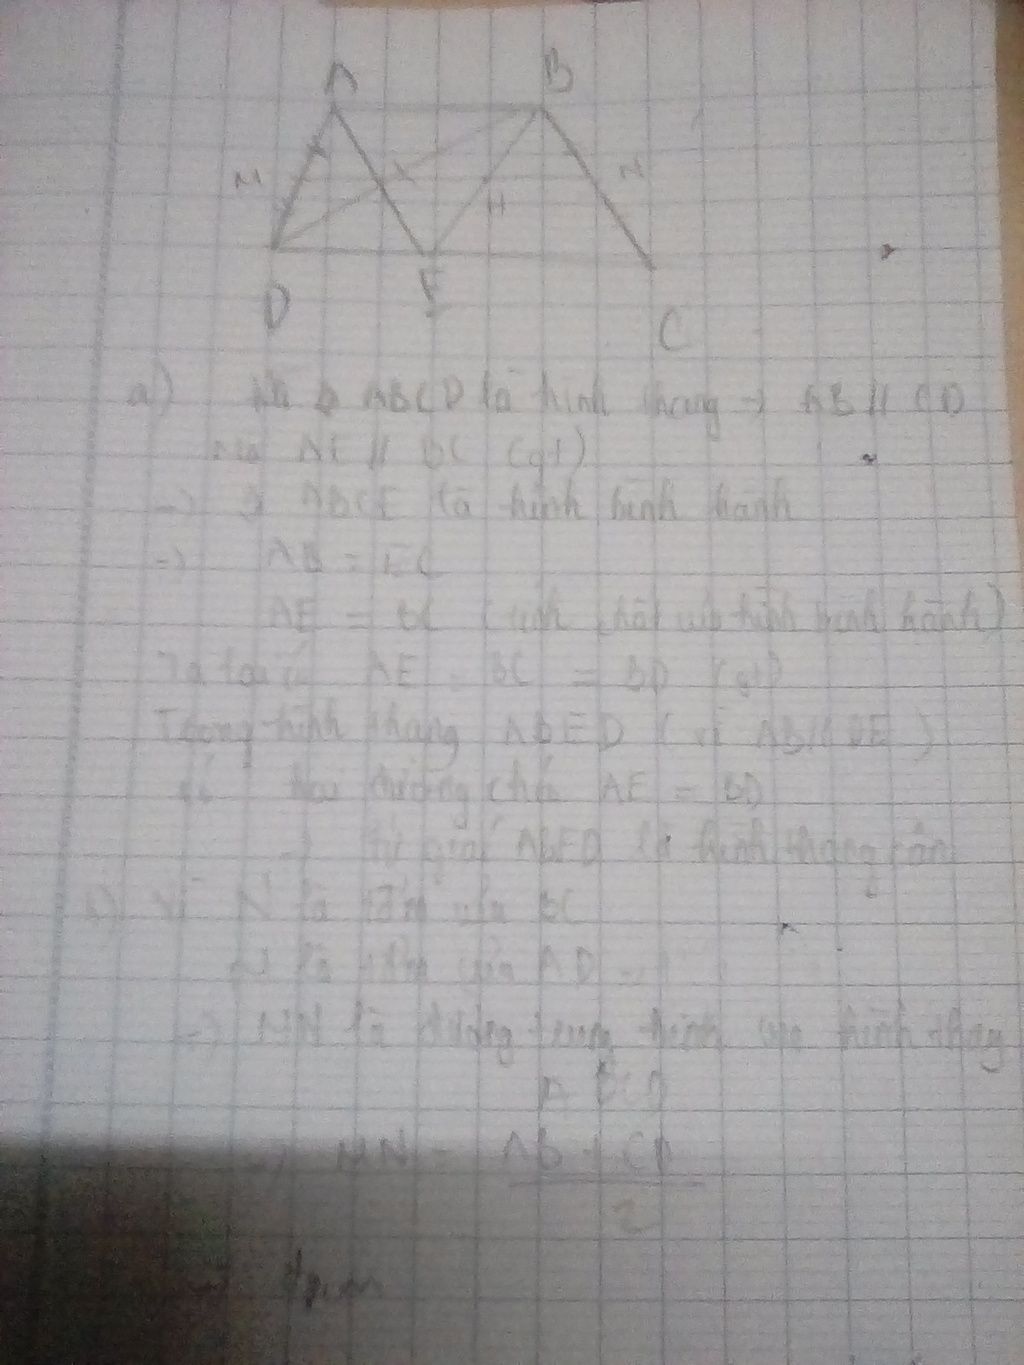 A B
M N
H
D E C
a) ABCD là hình thang → AB // CD
mà AE // BC (gt)
→ ABCE là hình bình hành
→ AB = EC
AE = BC (tính chất hình bình hành)
Ta lại có AE = BC = BD (gt)
Trong hình thang ABED (vì AB // DE)
có hai đường chéo AE = BD
→ tứ giác ABED là hình thang cân
b) Vì N là của BC
M là của AD
→ MN là đường trung bình của hình thang
ABCD
→ MN = AB + CD
2